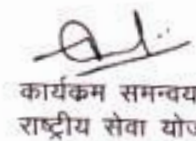 कार्यक्रम समन्वय
राष्ट्रीय सेवा योज